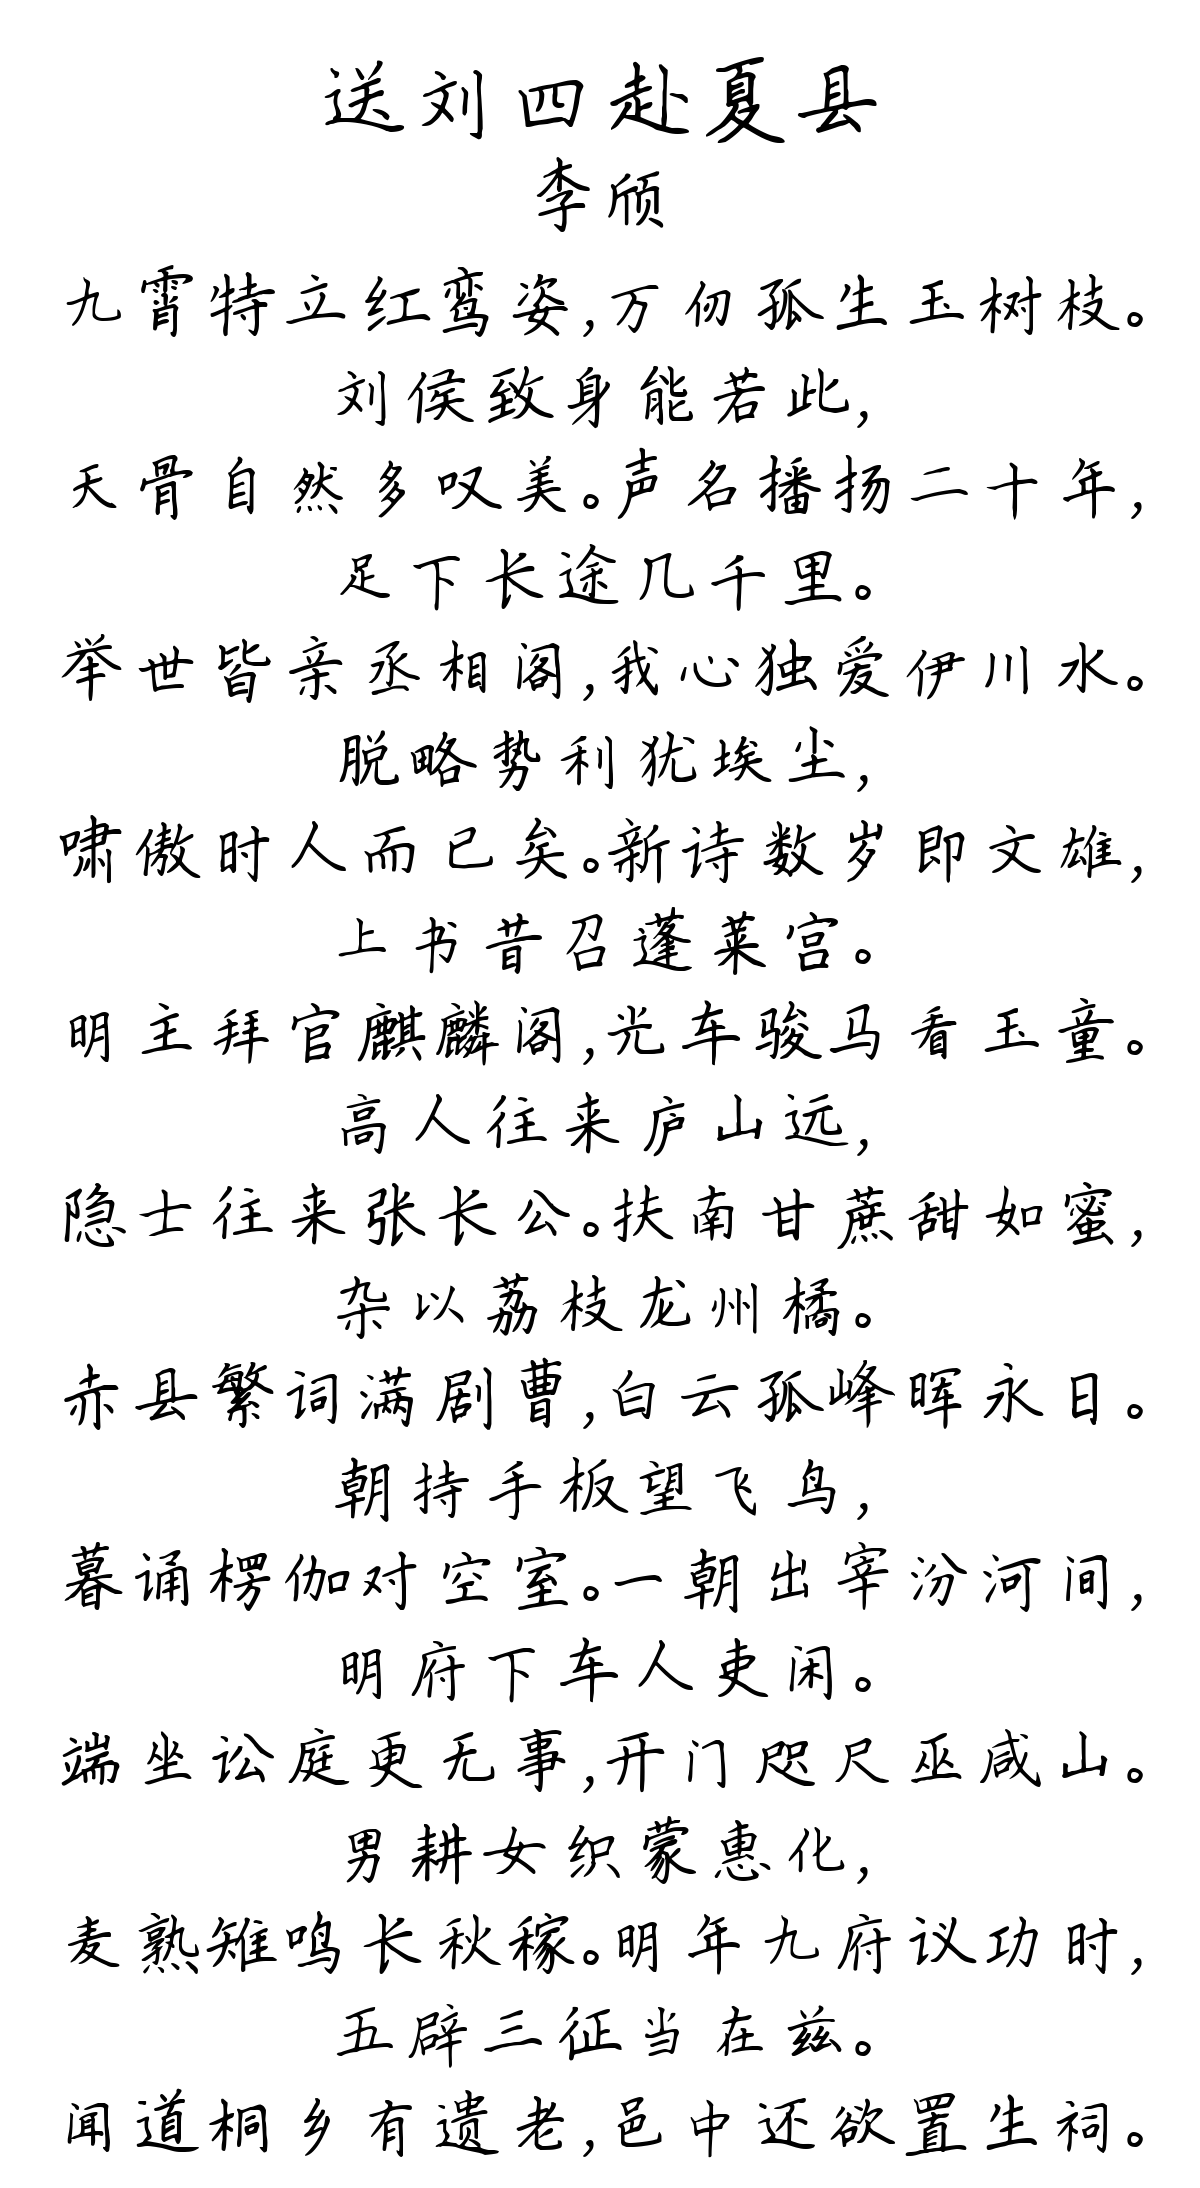 送刘四赴夏县
李颀
九霄特立红鸾姿,万仞孤生玉树枝。
刘侯致身能若此,
天骨自然多叹美。声名播扬二十年,
足下长途几千里。
举世皆亲丞相阁,我心独爱伊川水。
脱略势利犹埃尘,
啸傲时人而已矣。新诗数岁即文雄,
上书昔召蓬莱宫。
明主拜官麒麟阁,光车骏马看玉童。
高人往来庐山远,
隐士往来张长公。扶南甘蔗甜如蜜,
杂以荔枝龙州橘。
赤县繁词满剧曹,白云孤峰晖永日。
朝持手板望飞鸟,
暮诵楞伽对空室。一朝出宰汾河间,
明府下车人吏闲。
端坐讼庭更无事,开门咫尺巫咸山。
男耕女织蒙惠化,
麦熟雉鸣长秋稼。明年九府议功时,
五辟三征当在兹。
闻道桐乡有遗老,邑中还欲置生祠。